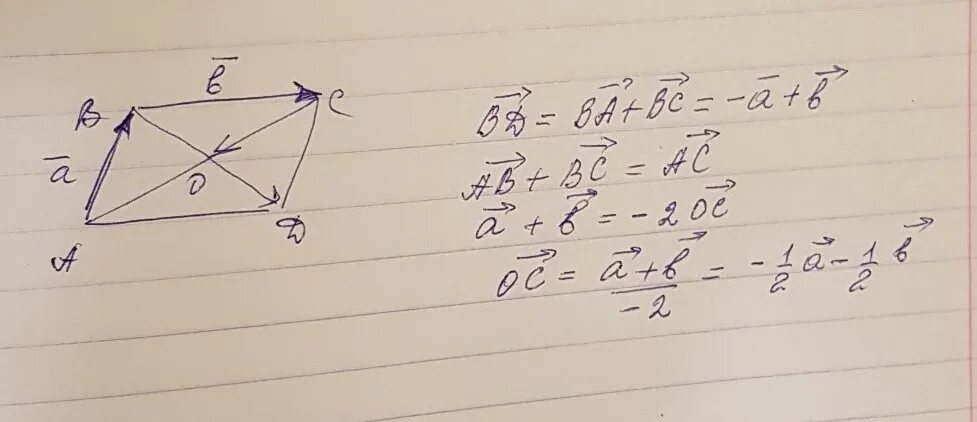 b̅
B
C
a̅
O
A
D
B͞D⃗ = B͞A⃗ + B͞C⃗ = -a̅ + b⃗
A͞B⃗ + B͞C⃗ = A͞C⃗
a⃗ + b⃗ = -2 O͞C⃗
O͞C⃗ = (a⃗ + b⃗)/-2 = -1/2 a⃗ - 1/2 b⃗